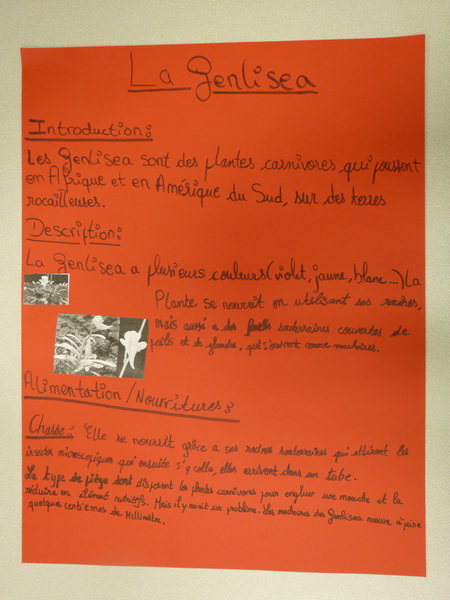 La Genlisea
Introduction:
Les Genlisea sont des plantes carnivores, qui poussent
en Afrique et en Amérique du Sud, sur des terres
rocailleuses.
Description:
La Genlisea a plusieurs couleurs (violet, jaune, blanc...) La
Plante se nourrit en utilisant ses racines,
mais aussi a des souterraines couvertes de
poils et de glandes, qui s'ouvrent comme machoires.
Alimentation/Nourritures:
Chasse: Elle se nourrit grâce a ses racines souterraines qui attirent les
insectes microscopiques qui ensuite s'y colle, elles arrivent dans un tube.
Le type de piège dont disposent les plantes carnivores pour engluer une mouche et la
réduire en élément nutritifs. Mais il y avait un problème. Les machoires des Genlisea mesure à peine
quelques centièmes de Millimètre.